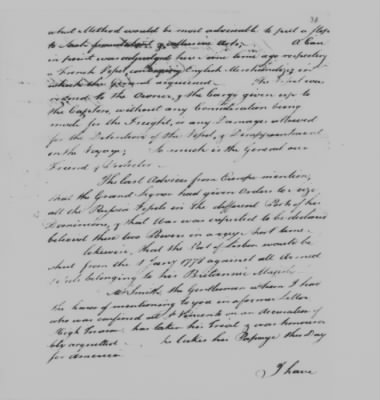 what Method would be most adviseable to put a stop
to Such
A Case
in point was adjudged here some time ago respecting
a French Vessel, English Merchandize in
which she acquiesced. The Vessel was
restored to the Owner, & the Cargo given up to
the Captors, without any Consideration being
made for the Freight, or any Damage allowed
for the Detention of the Vessel, & Disappointment
on the Voyage; So much is the General our
Friend &
The last Advices from Europe mention,
that the Grand Signor had given Orders to seize
all the Russian Vessels in the different Ports of his
Dominions, & that War was expected to be declared
between these two Powers in a very short time.
Likewise, that the Port of Lisbon would be
shut from the 1 Jany 1778 against all Armed
Vessels belonging to his Britannic Majesty
Mr Smith, the Gentleman whom I had
the honor of mentioning to you in a former Letter
who was confined at St on an accusation of
High Treason has taken his Trial & was honoura-
bly acquitted. he takes his Passage this Day
for America
I have